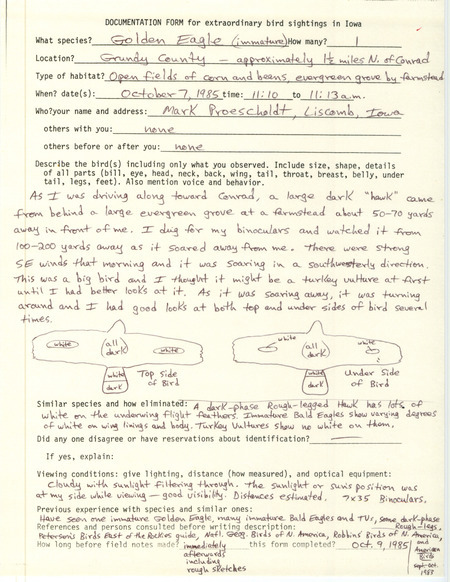 DOCUMENTATION FORM for extraordinary bird sightings in Iowa
What species? Golden Eagle (immature) How many? 1
Location? Grundy County — approximately 1½ miles N. of Conrad
Type of habitat? Open fields of corn and beans, evergreen grove by farmstead
When? date(s): October 7, 1985 time: 11:10 to 11:13 a.m.
Who? your name and address: Mark Proescholdt, Liscomb, Iowa
others with you: none
others before or after you: none
Describe the bird(s) including only what you observed. Include size, shape, details
of all parts (bill, eye, head, neck, back, wing, tail, throat, breast, belly, under
tail, legs, feet). Also mention voice and behavior.
As I was driving along toward Conrad, a large dark "hawk" came
from behind a large evergreen grove at a farmstead about 50-70 yards
away in front of me. I dug for my binoculars and watched it from
100-200 yards away as it soared away from me. There were strong
SE winds that morning and it was soaring in a southwesterly direction.
This was a big bird and I thought it might be a turkey vulture at first
until I had better looks at it. As it was soaring away, it was turning
around and I had good looks at both top and under sides of bird several
times.
white all dark white white all dark white
white dark Top side of Bird white dark Under side of Bird
Similar species and how eliminated: A dark-phase Rough-legged Hawk has lots of
white on the underwing flight feathers. Immature Bald Eagles show varying degrees
of white on wing linings and body. Turkey Vultures show no white on them.
Did any one disagree or have reservations about identification?
If yes, explain:
Viewing conditions: give lighting, distance (how measured), and optical equipment:
Cloudy with sunlight filtering through. The sunlight or sun's position was
at my side while viewing — good visibility. Distances estimated. 7x35 Binoculars.
Previous experience with species and similar ones:
Have seen one immature Golden Eagle, many immature Bald Eagles and TVs, some dark-phase
Rough-legs.
References and persons consulted before writing description:
Peterson's Birds East of the Rockies guide, Natl. Geog. Birds of N. America, Robbins' Birds of N. America,
and American Birds Sept-Oct. 1983
How long before field notes made? immediately afterwards including rough sketches this form completed? Oct. 9, 1985